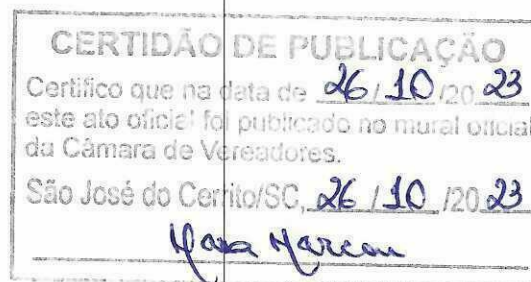 CERTIDÃO DE PUBLICAÇÃO
Certifico que na data de 26/10/2023
este ato oficial foi publicado no mural oficial
da Câmara de Vereadores.
São José do Cerrito/SC, 26/10/2023
Marcon